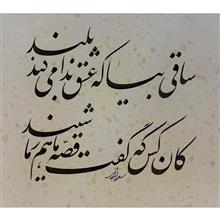 ساقی بیا که عشق ندا می کند بلند
کان کس که گفت قصه ما هم ز ما شنید